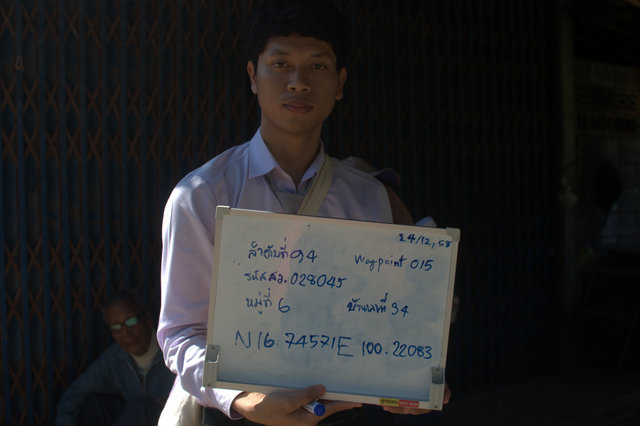 24/12/58
ลำดับที่ 94 Waypoint 015
รหัส สว. 028045
หมู่ที่ 6 บ้านเลขที่ 34
N 16.74571 E 100.22083